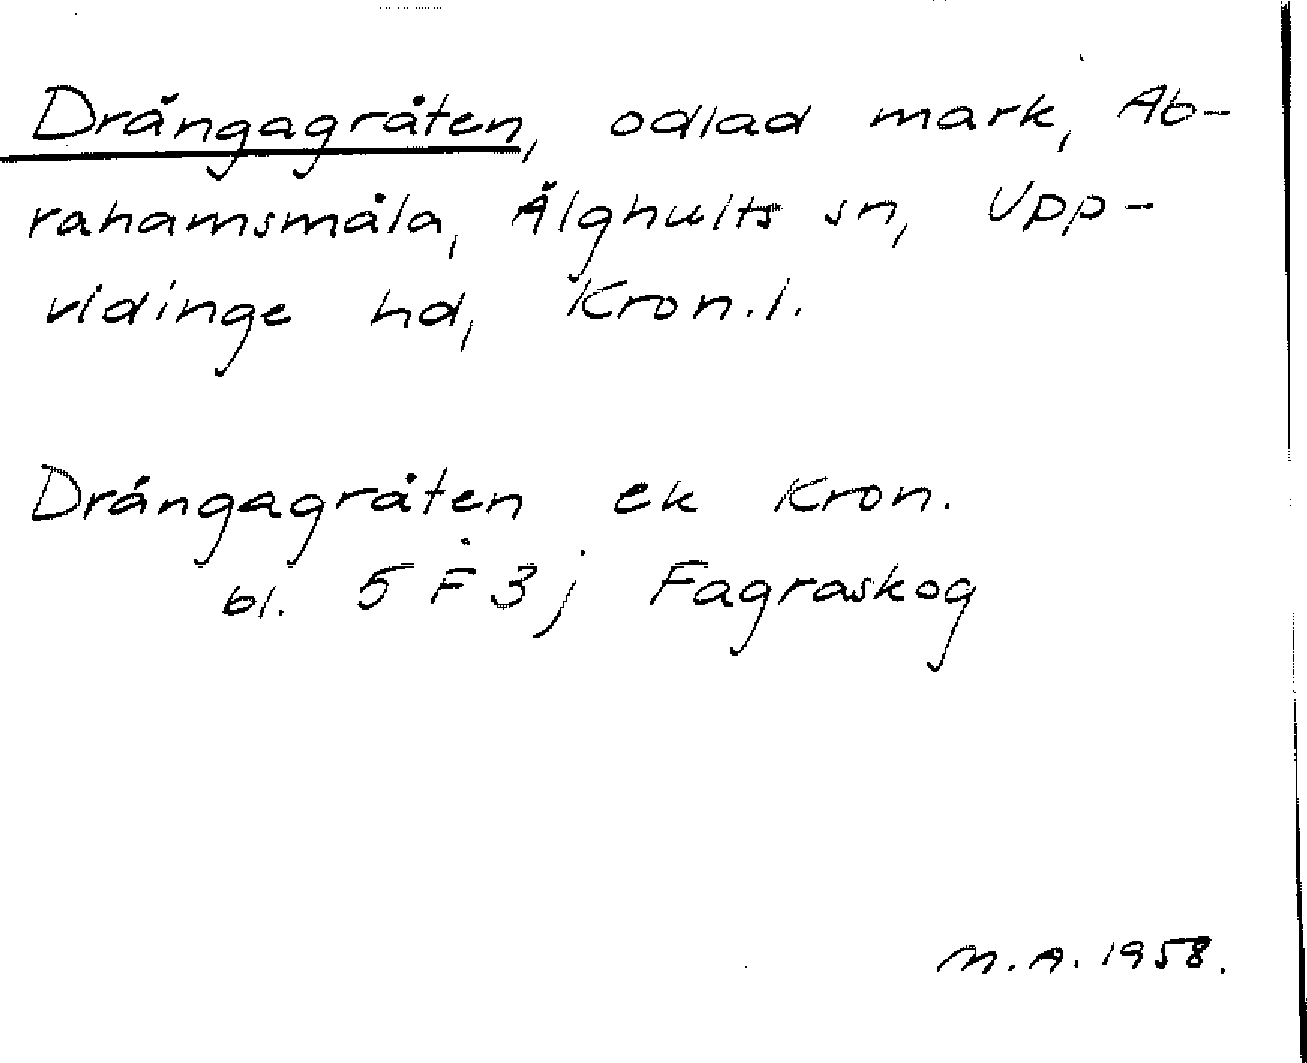 Drängagråten, odlad mark, Ab-
rahamsmåla, Älghults sn, Upp-
vidinge hd, Kron.l.
Drängagråten ek Kron.
bl. 5 F 3 j Fagraskog
M.A. 1958.